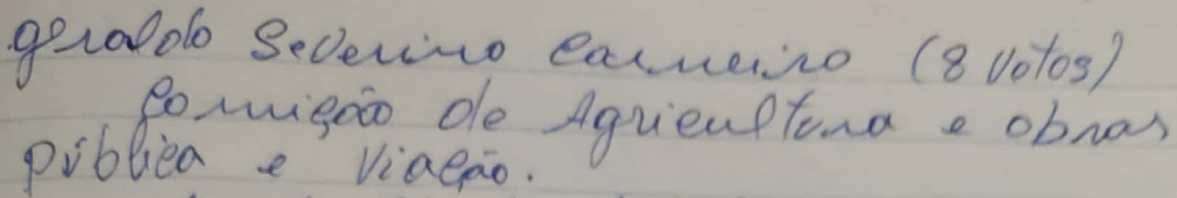 geraldo Severino Carneiro (8 votos)
Comição de Agricultura e obras
pública e Viação.